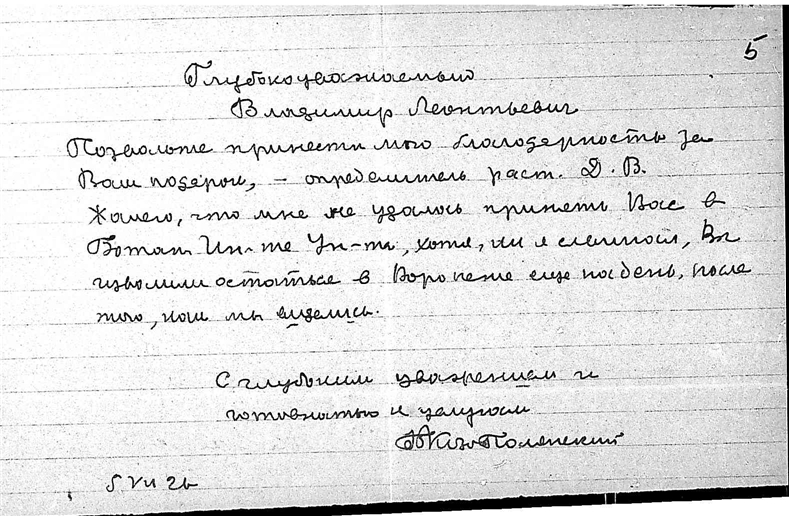 5
Глубокоуважаемый
Владимир Леонтьевич
Позвольте принести мою благодарность за
Ваш подарок, – определитель раст. Д. В.
Жалею, что мне не удалось принять Вас в
Ботан. Ин-те Ун-та, хотя, как я слышал, Вы
изволили остаться в Воронеже еще на день, после
того, как мы виделись.
С глубоким уважением и
готовностью к услугам
Козо-Полянский
5 VII 26